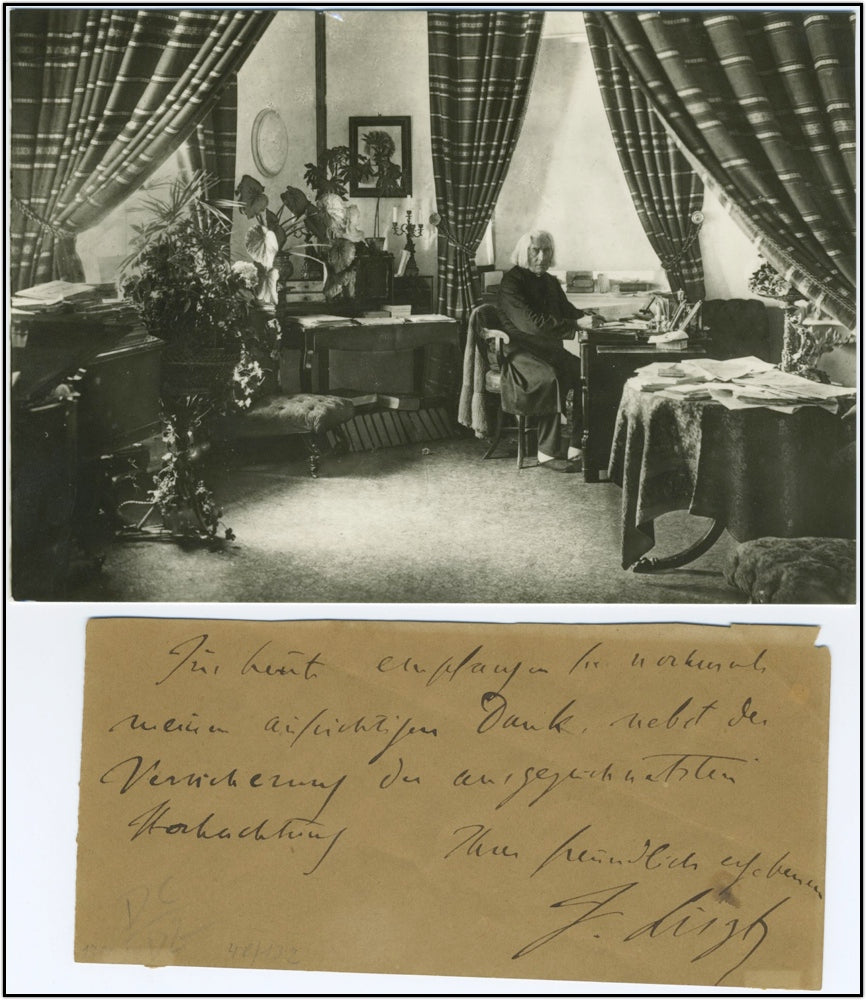 Für heute empfangen Sie nochmals
meinen aufrichtigen Dank, nebst der
Versicherung der ausgezeichnetsten
Hochachtung Ihres freundlich ergebenen
F. Liszt
DC